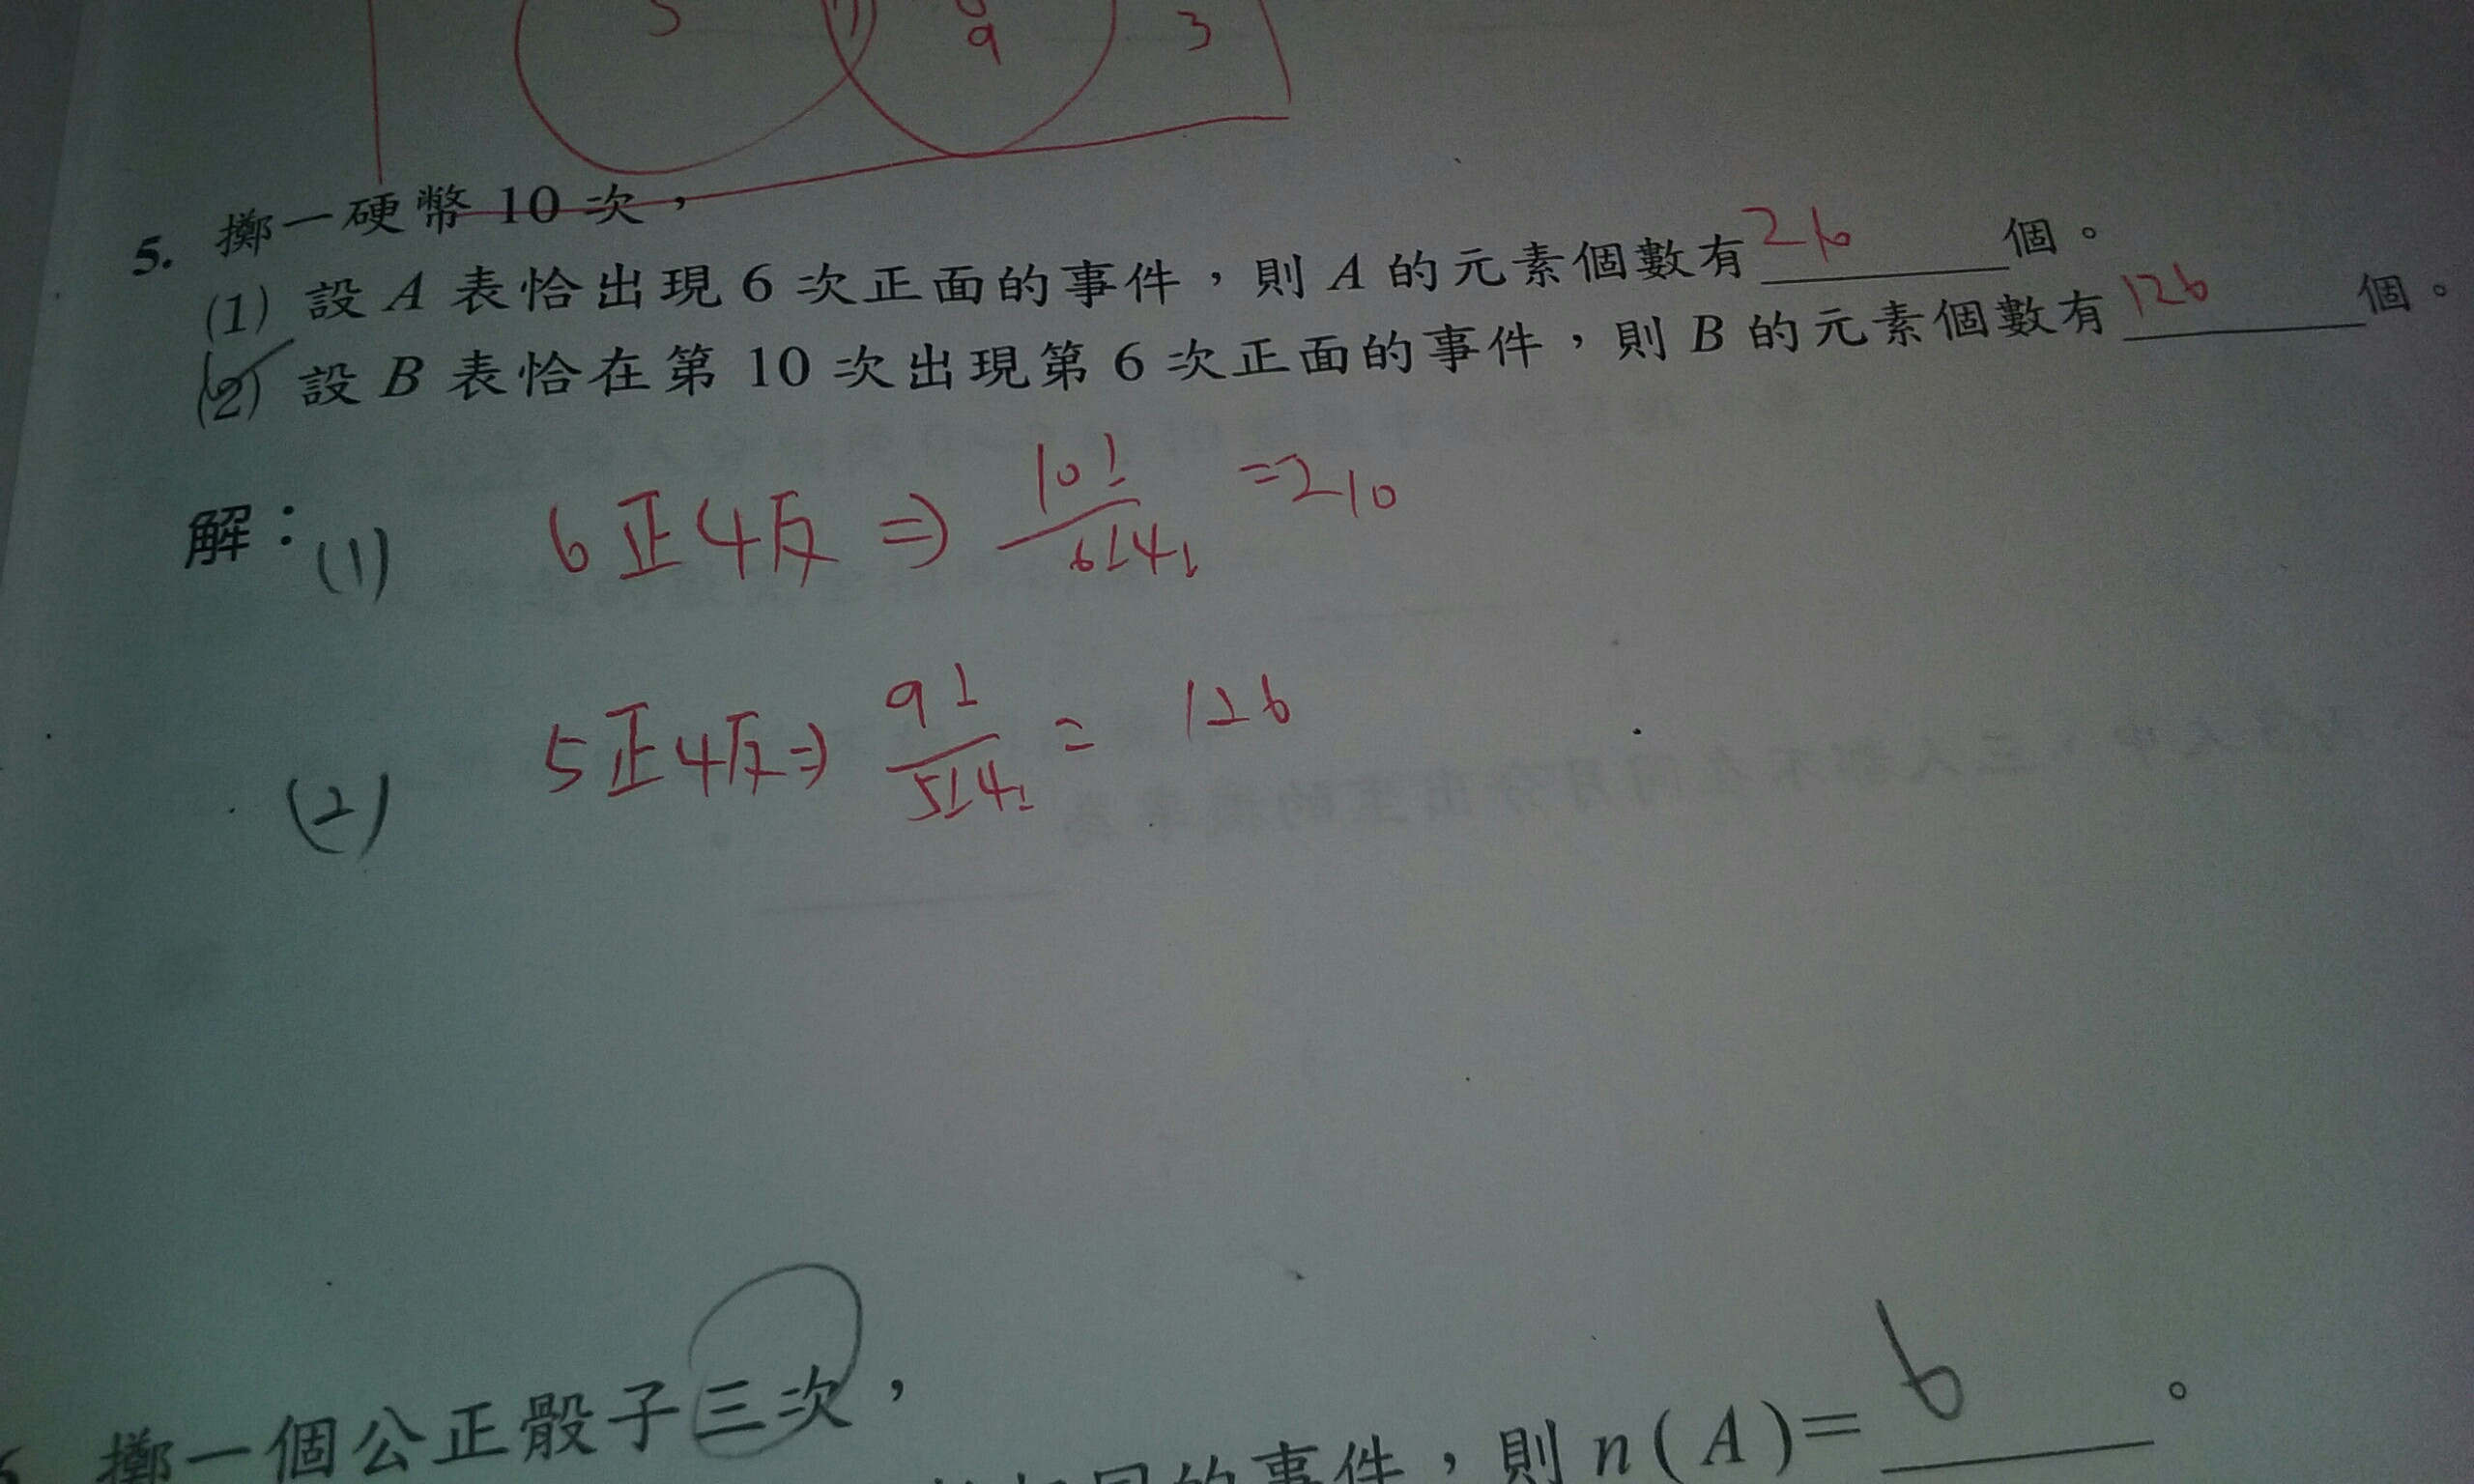 5 9 3
5. 擲一硬幣 10 次，
(1) 設 A 表恰出現 6 次正面的事件，則 A 的元素個數有 210 個。
(2) 設 B 表恰在第 10 次出現第 6 次正面的事件，則 B 的元素個數有 126 個。
解：(1) 6正4反 ⇒ 10!/6!4! =210
(2) 5正4反⇒ 9!/5!4! = 126
擲一個公正骰子三次，
的事件，則 n(A)= 6 。